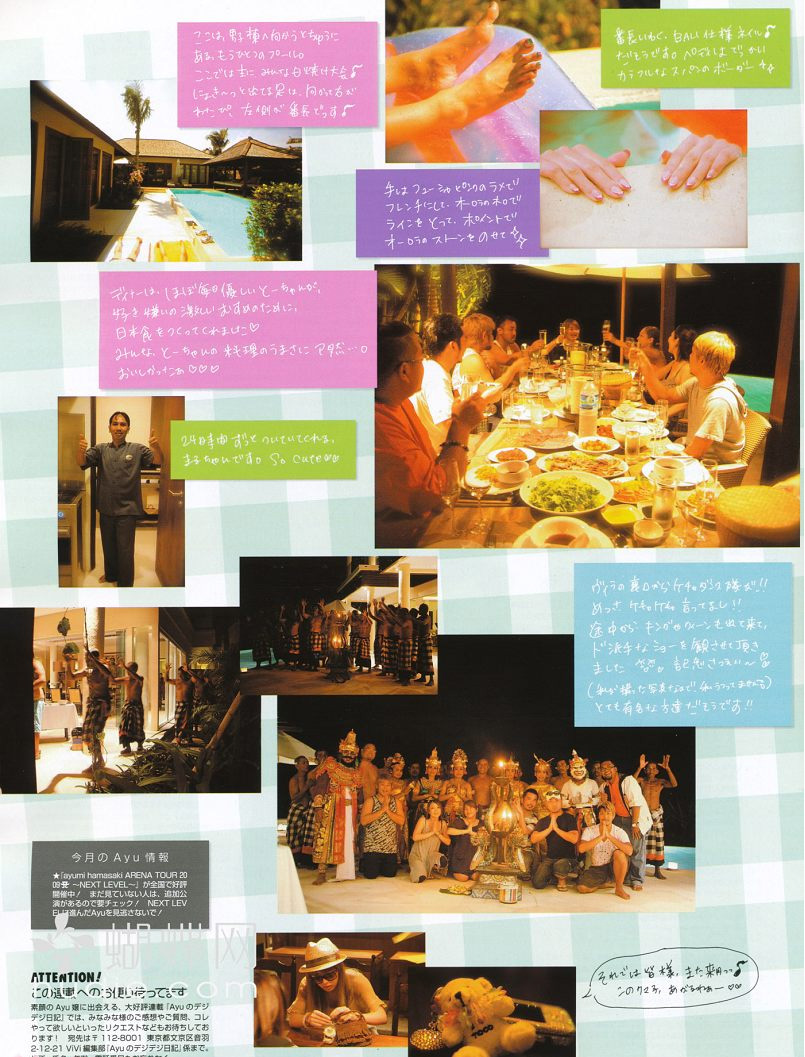 ここは、男子棟へ向かうとちゅうに
ある、もうひとつのプール。
ここでは主に みんな日焼け大会♪
にょき〜っと出てる足は、向かって右が
わたぴ、左側が番長でっす♪
番長いわく、BALI仕様ネイル♪
だそうです。ペディはでっかい
カラフルなスパンのボーダー
手はフューシャピンクのラメで
フレンチにして、オーロラのネロで
ラインをとって、ポイントで
オーロラのストーンをのせて
ディナーは、ほぼ毎日優しいとーちゃんが、
好き嫌いの激しいむすめのために、
日本食をつくってくれました♡
みんな、とーちゃんの料理のうまさに アタ然…。
おいしかったぁ♡♡♡
24時間ずっとついていてくれる、
まるちゃんです。So cute♡♡
ヴィラの裏口からケチャダンス隊が!!
めっさケチャケチャ言ってるし!!
途中からキングやクィーンも出て来て、
ド派手なショーを観させて頂き
ました 笑。記念さつえい〜♡
(私が撮った写真なので、私うつってませんが)
とても有名な方達だそうです!!
今月のAyu情報
★「ayumi hamasaki ARENA TOUR 20
09 A 〜NEXT LEVEL〜」が全国で好評
開催中! まだ見ていない人は、追加公
演があるので要チェック! NEXT LEV
ELに進んだAyuを見逃さないで!
蝴蝶网
ATTENTION!
この連載へのお便り待ってます
素顔のAyu嬢に出会える、大好評連載「Ayuのデジ
デジ日記」では、みなみな様のご感想やご質問、コレ
やって欲しいといったリクエストなどもお待ちしてお
ります! 宛先は〒112-8001 東京都文京区音羽
2-12-21 ViVi編集部「Ayuのデジデジ日記」係まで。
それでは皆様、また来月っ♪
このクマろ、あがるわぁー♡♡